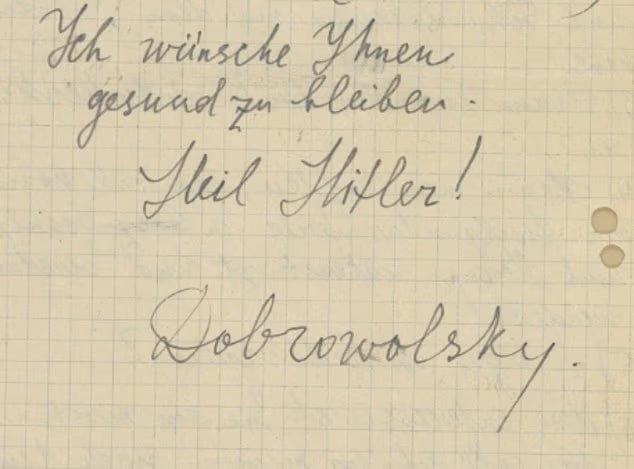 Ich wünsche Ihnen
gesund zu bleiben.
Heil Hitler!
Dobrowolsky.